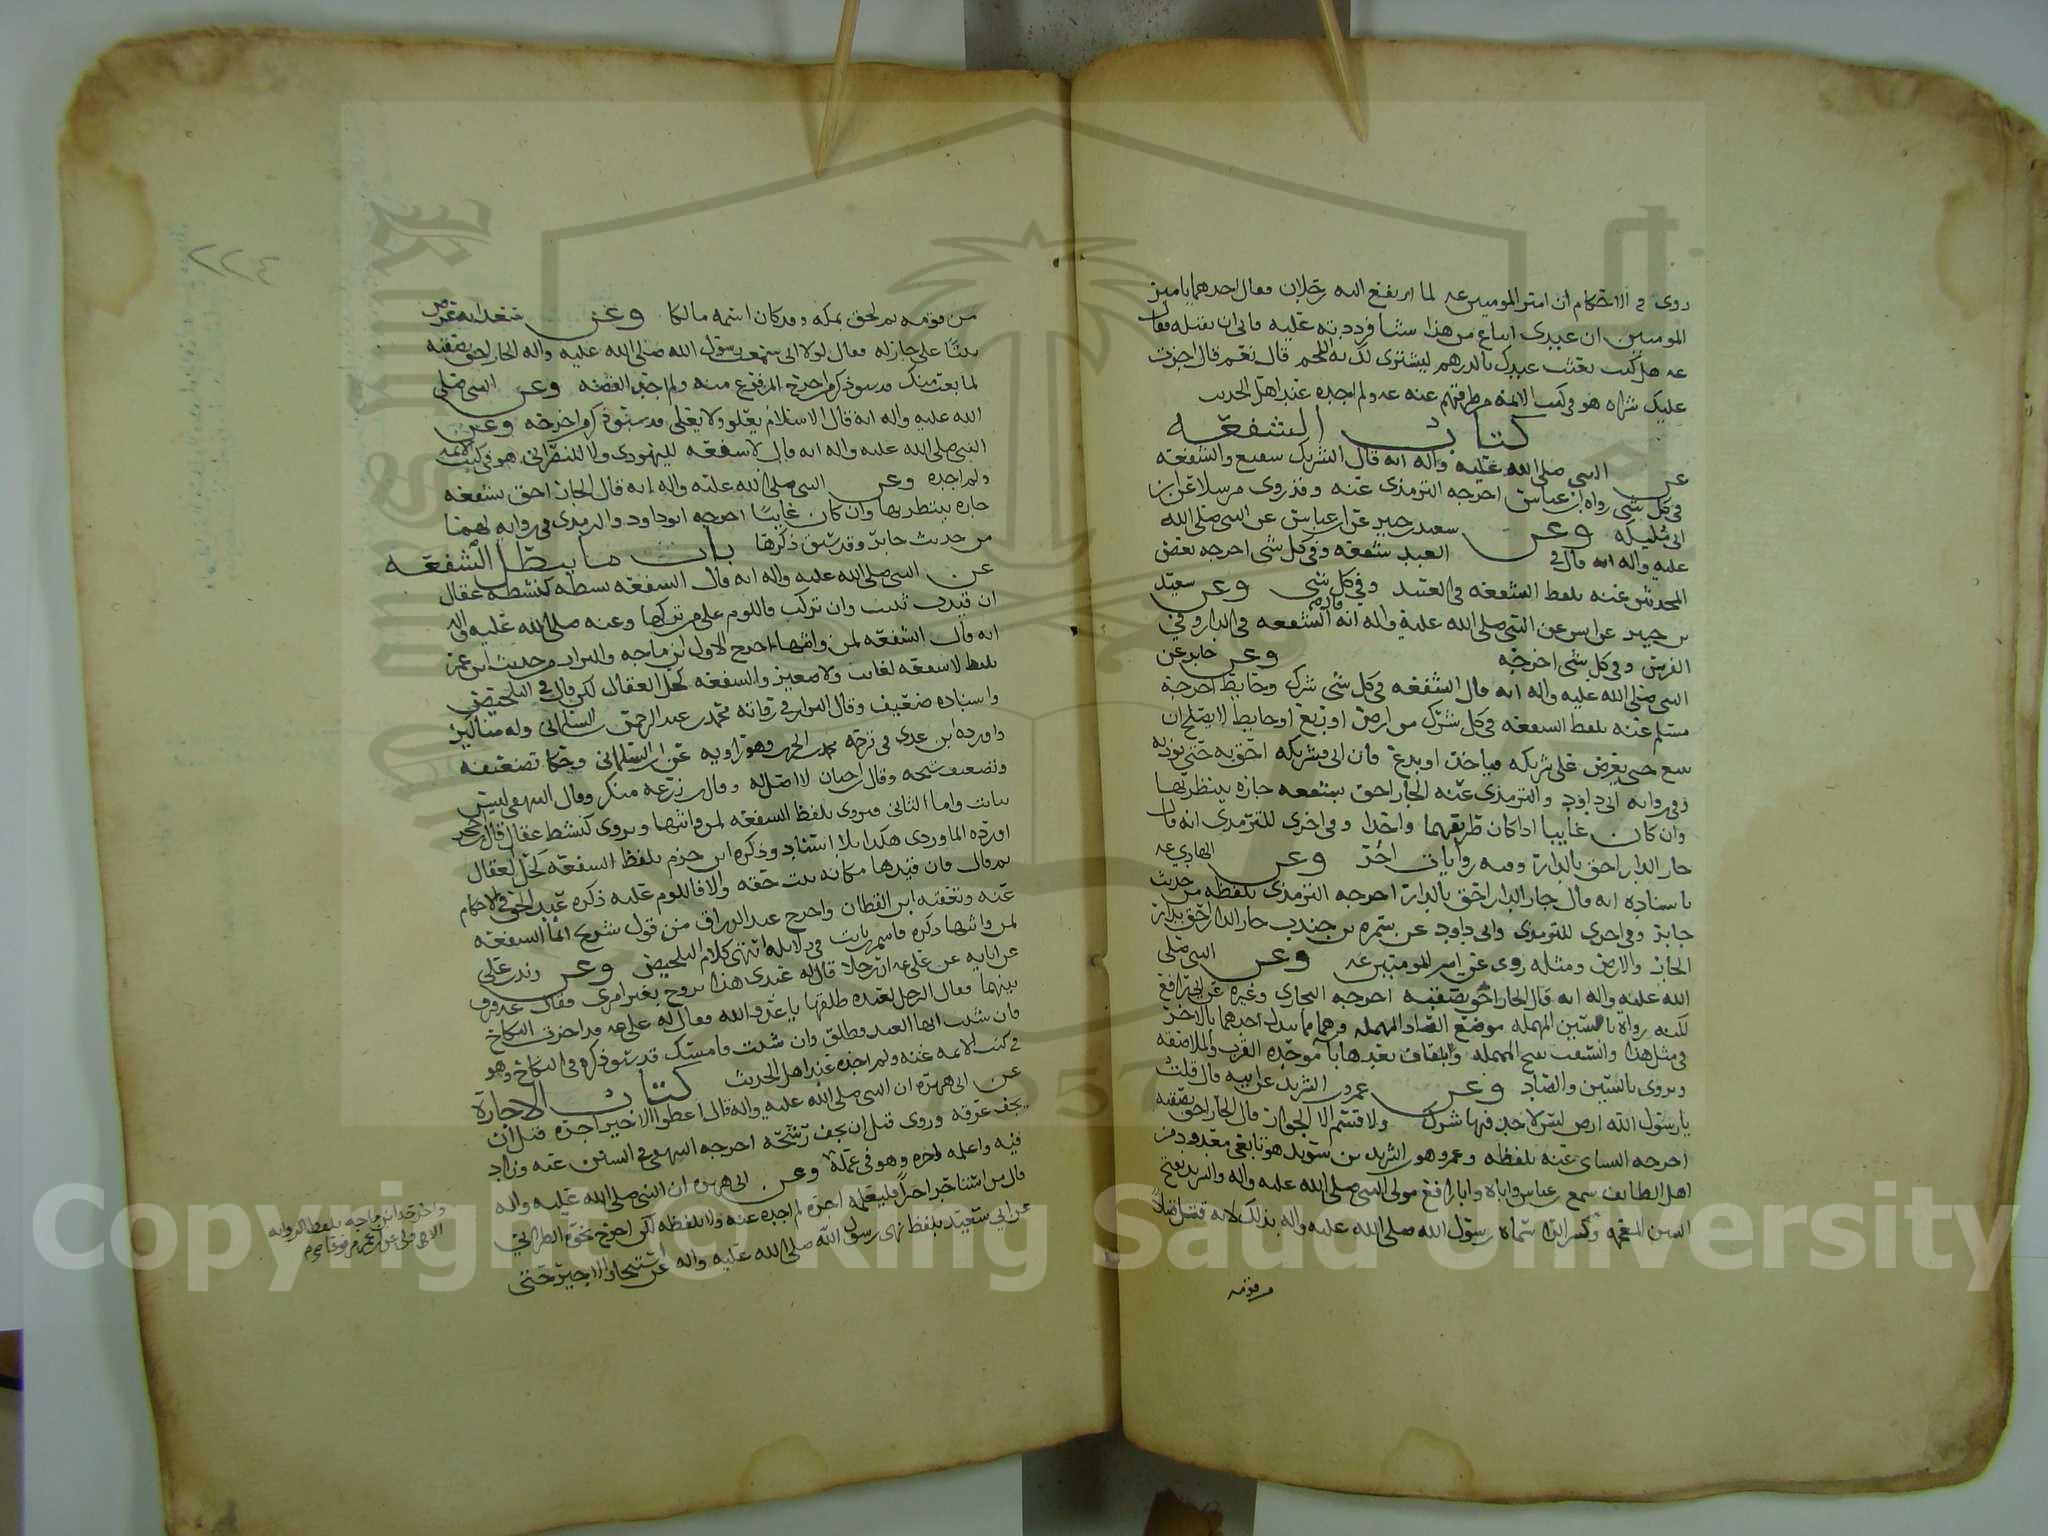 روى في الاحكام ان امير المومنين عه لما ارتفع اليه رجلان فقال احدهما يا امير
المومنين ان عبدى ابتاع من هذا شيئا فرددته عليه فابى ان يقبله فقال
عه هل كنت بعثت عبدك بالدرهم ليشترى لك به اللحم قال نعم قال اجزت
عليك شراه هو في كتب الائمة من طرقهم عنه عه ولم اجده عند اهل الحديث
كتاب الشفعه
عن النبى صلى الله عليه واله انه قال الشريك شفيع والشفعه
في كل شى رواه ابن عباس اخرجه الترمذى عنه وقد روى مرسلا عن ابن
ابى مليكه وعن سعيد بن جبير عن ابن عباس عن النبى صلى الله
عليه واله انه قال في العبد شفعه وفي كل شى اخرجه بعض
المحدثين عنه بلفظ الشفعه في العبيد وفي كل شى وعن سعيد
بن جبير عن انس عن النبى صلى الله عليه واله انه قال الشفعه في الدار وفي
الفرس وفي كل شى اخرجه وعن جابر عن
النبى صلى الله عليه واله انه قال الشفعه في كل شى شرك وحايط اخرجه
مسلم عنه بلفظ الشفعه في كل شرك من ارض او ربع او حايط لا يصلح ان
يبيع حتى يعرض على شريكه فياخذ او يدع فان ابى فشريكه احق به حتى يوذنه
وفي روايه ابى داود والترمذى عنه الجار احق بشفعه جاره ينتظر بها
وان كان غايبا اذا كان طريقهما واحدا وفي اخرى للترمذى انه قال
جار الدار احق بالدار وفيه روايات اخر وعن الهادي عه
باسناده انه قال جار الدار احق بالدار اخرجه الترمذى بلفظه من حديث
جابر وفي اخرى للترمذى وابى داود عن سمره بن جندب جار الدار احق بدار
الجار والارض ومثله روى عن امير المومنين عه وعن النبى صلى
الله عليه واله انه قال الجار احق بصقبه اخرجه البخارى وغيره عن ابى رافع
لكنه رواه بالسين المهمله موضع الصاد المهمله وهما مما يبدل احدهما بالاخر
في مثل هذا والسقب بفتح المهمله والقاف بعدها با موحده القرب والملاصقه
ويروى بالسين والصاد وعن عمرو بن الشريد عن ابيه قال قلت
يا رسول الله ارض ليس لاحد فيها شرك ولا قسم الا الجوار قال الجار احق بصقبه
اخرجه النساى عنه بلفظه وعمرو هو ابن الشريد بن سويد هو تابعى معدود من
اهل الطايف سمع ابن عباس واباه وابا رافع مولى النبى صلى الله عليه واله والشريد بفتح
الشين المعجمه وكسر الرا سماه رسول الله صلى الله عليه واله بذلك لانه قتل قتيلا
من قومه
من قومه ثم لحق بمكه وقد كان اسمه مالكا وعن سعد انه عرض
بيتا على جار له فقال لولا انى سمعت رسول الله صلى الله عليه واله الجار احق بصقبه
لما بعت منك قد سبق ذكر من اخرج المرفوع منه ولم اجد القصه وعن النبى صلى
الله عليه واله انه قال الاسلام يعلو ولا يعلى قد سبق ذكر من اخرجه وعن
النبى صلى الله عليه واله انه قال لا شفعه لليهودى ولا للنصرانى هو في كتب الائمه
ولم اجده وعن النبى صلى الله عليه واله انه قال الجار احق بشفعه
جاره ينتظر بها وان كان غايبا اخرجه ابو داود والترمذى في روايه لهما
من حديث جابر وقد سبق ذكرها باب ما يبطل الشفعه
عن النبى صلى الله عليه واله انه قال الشفعه نشطه كنشطه عقال
ان قيدت ثبتت وان تركت فاللوم على من تركها وعنه صلى الله عليه واله
انه قال الشفعه لمن واثبها اخرج الاول ابن ماجه والبزار من حديث ابن عمر
بلفظ لا شفعه لغايب ولا صغير والشفعه كحل العقال لكن قال في التلخيص
واسناده ضعيف وقال البزار في رواته محمد بن عبد الرحمن البيلمانى وله مناكير
واورده ابن عدى في ترجمه محمد بن الحرث وهو راويه عن ابن البيلمانى وحكا تضعيفه
وتضعيف شيخه وقال ابن حبان لا اصل له وقال ابو زرعه منكر وقال البيهقى ليس
بثابت واما الثانى فيروى بلفظ الشفعه لمن واثبها ويروى كنشط عقال قال ابن حجر
اورده الماوردى هكذا بلا اسناد وذكره ابن حزم بلفظ الشفعه كحل العقال
ثم قال فان قيدها مكانه ثبت حقه والا فاللوم عليه ذكره عبد الحق في الاحكام
عنه وتعقبه ابن القطان واخرج عبد الرزاق من قول شريح انما الشفعه
لمن واثبها ذكره قاسم بن ثابت في دلايله انتهى كلام التلخيص وعن زيد بن على
عن ابايه عن على عه ان رجلا قال له عبدى هذا تزوج بغير امرى فقال عه فرق
بينهما فقال الرجل لعبده طلقها يا عدو الله فقال له على عه قد اجزت النكاح
فان شئت ايها العبد فطلق وان شئت فامسك قد سبق ذكره في النكاح وهو
في كتب الائمه عنه ولم اجده عند اهل الحديث كتاب الاجارة
عن ابى هريره ان النبى صلى الله عليه واله قال اعطوا الاجير اجره قبل ان
يجف عرقه وروى قبل ان يجف رشحه اخرجه البيهقى في السنن عنه وزاد
فيه واعلمه اجره وهو في عمله وعن ابى هريره ان النبى صلى الله عليه واله
قال من استاجر اجيرا فليعلمه اجره لم اجده عنه ولا بلفظه لكن اخرج نحوه الطبرانى
عن ابى سعيد بلفظ نهى رسول الله صلى الله عليه واله عن استيجار الاجير حتى
واخرجه ابن ماجه بلفظ الروايه
الاولى عن ابن عمر مرفوعا
٢٢٤
Copyright © King Saud University
King Saud
1957